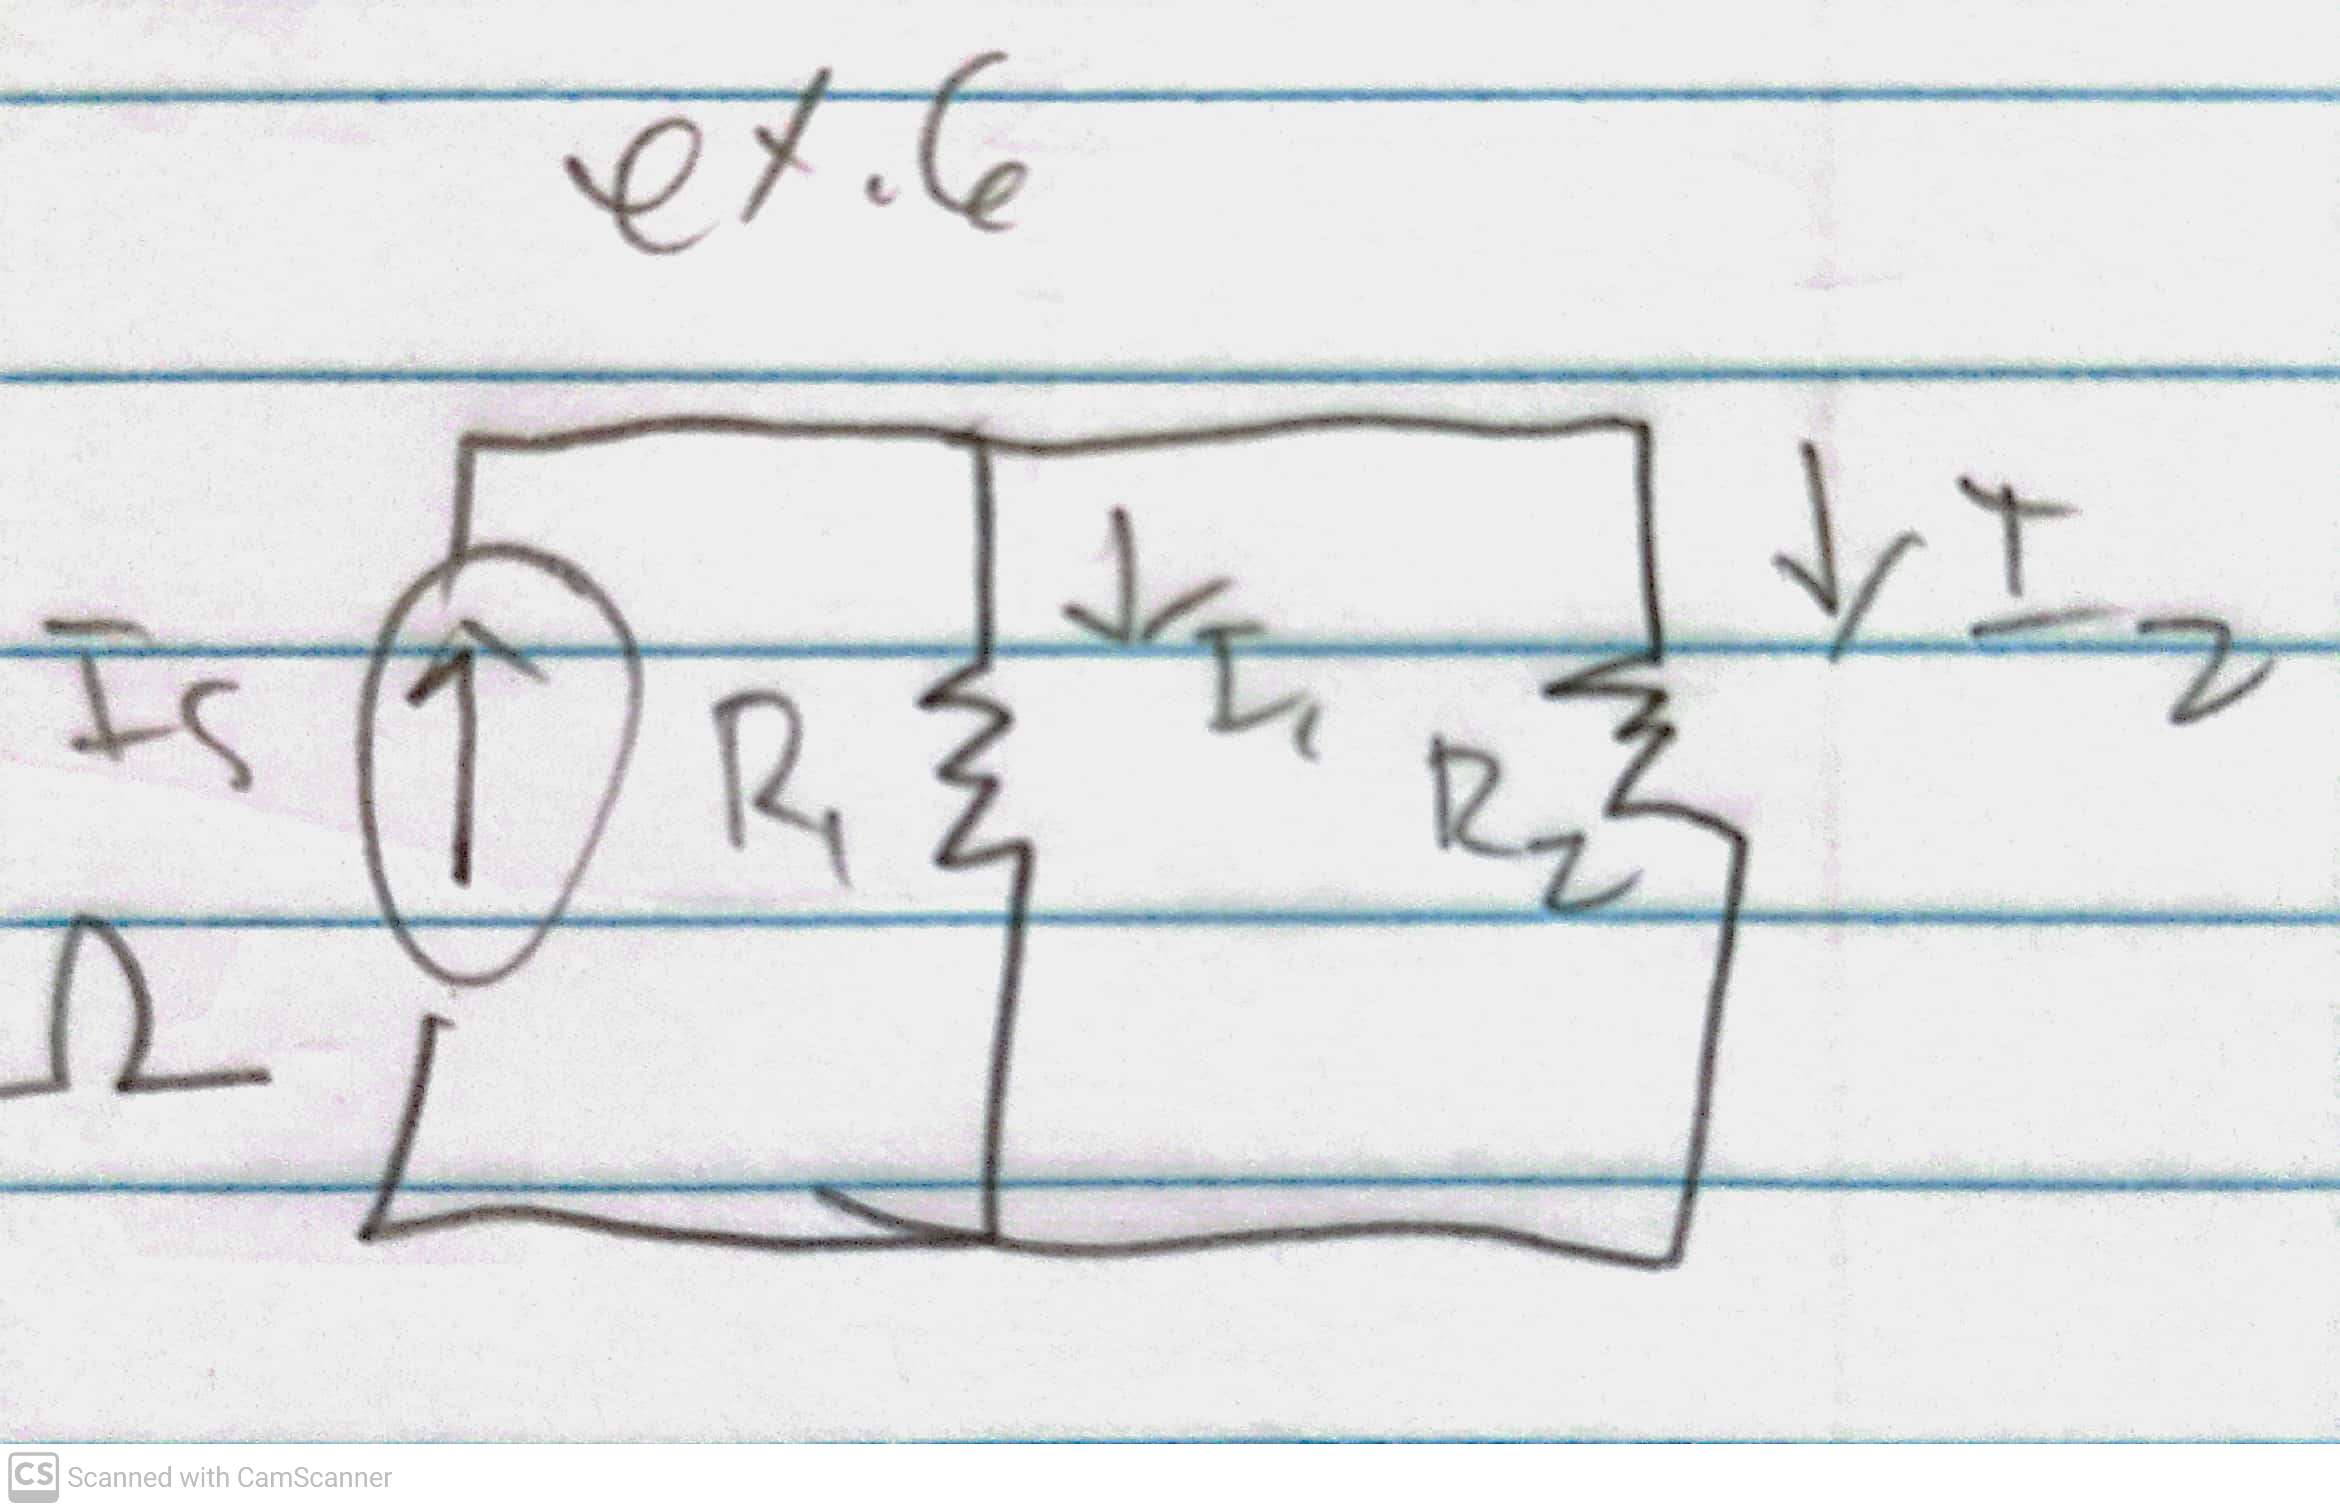 ex.6
Is
R1
I1
R2
I2
Ω
CS Scanned with CamScanner